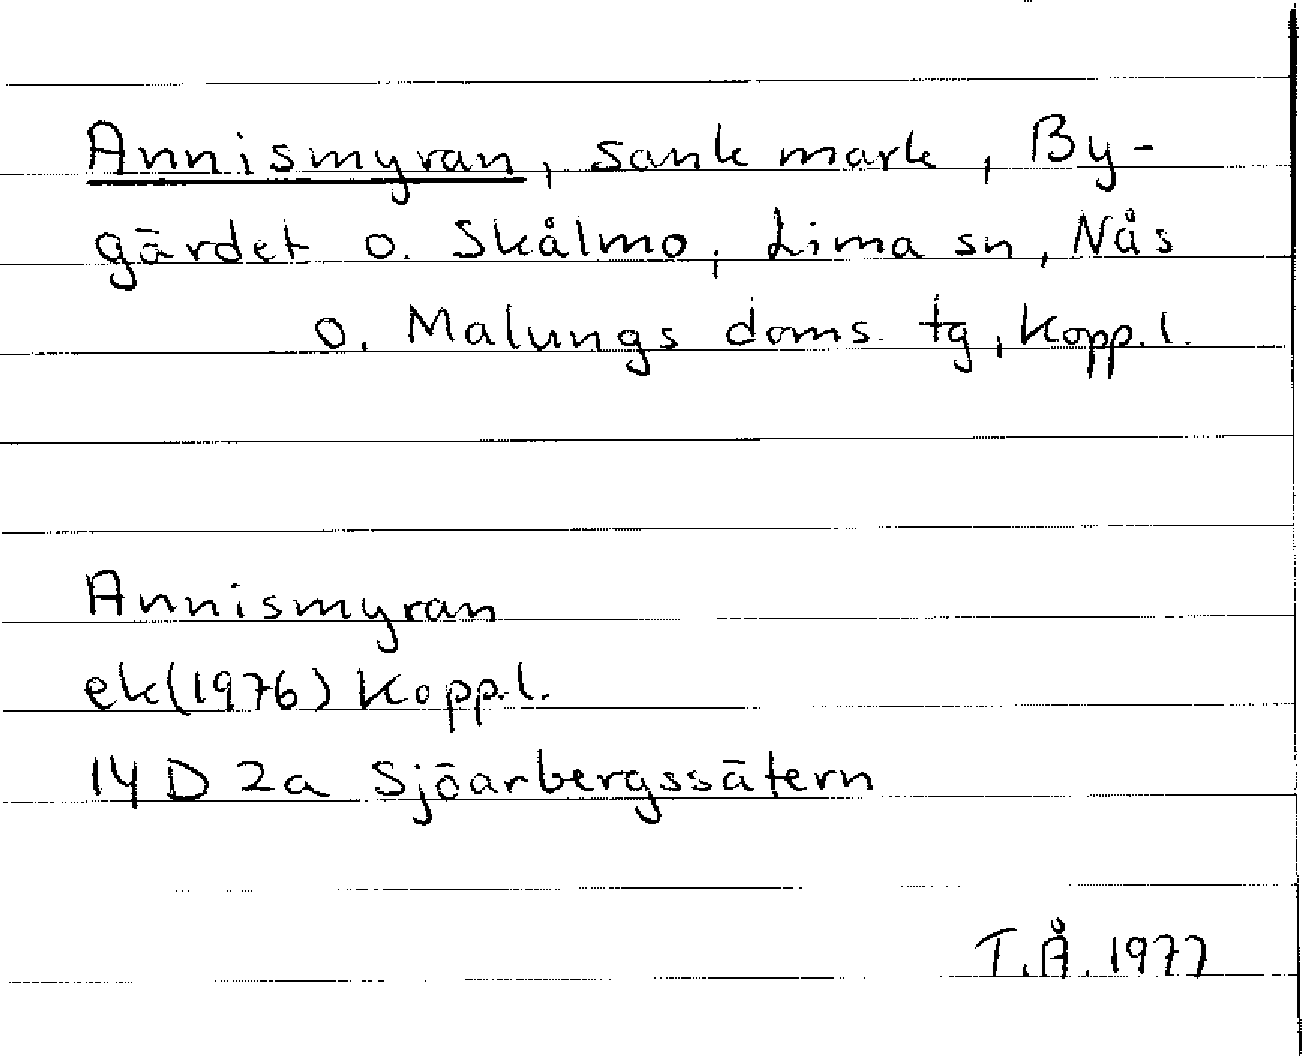 Annismyran, sank mark, By-
gärdet o. Skålmo, Lima sn, Nås
o. Malungs doms. tg, Kopp.l.
Annismyran
ek(1976) Kopp.l.
14 D 2a Sjöarbergssätern
T.Å. 1977